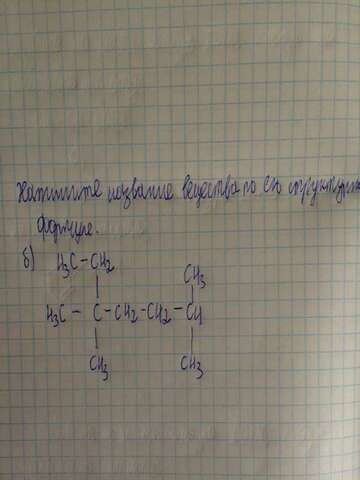 Напишите название вещества по его структурн
формуле.
б) H₃C-CH₂
CH₃
H₃C - C - CH₂ - CH₂ - CH
CH₃ CH₃